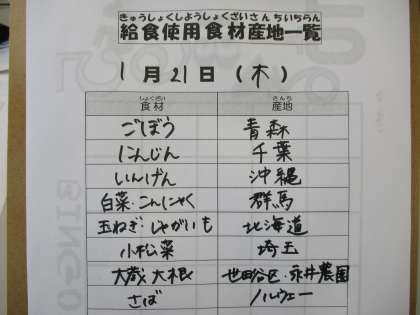 きゅうしょくしようしょくざいさんちいちらん
給食使用食材産地一覧
1月21日(木)
しょくざい さんち
食材 産地
ごぼう 青森
にんじん 千葉
いんげん 沖縄
白菜・こんにゃく 群馬
玉ねぎ・じゃがいも 北海道
小松菜 埼玉
大蔵大根 世田谷区・永井農園
さば ノルウェー
BINGO